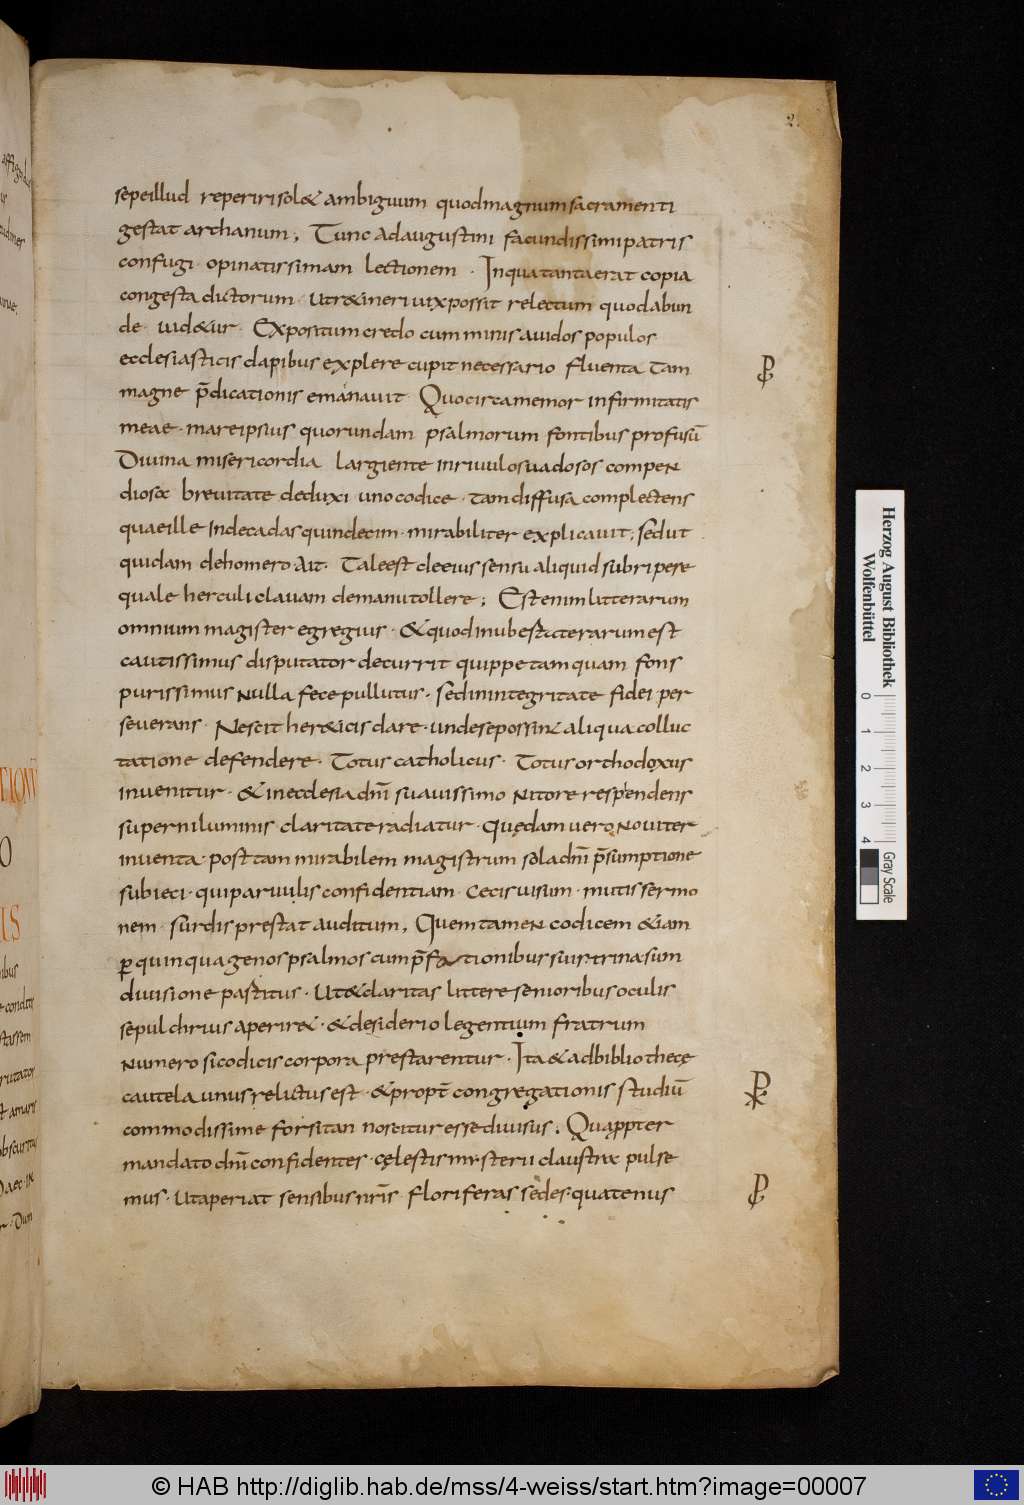 2.
sepeillud reperiri sol& ambiguum quodmagnum sacramenti
gestat archanum; Tunc adaugustini facundissimi patris
confugi · opinatissimam lectionem · Inqua tanta erat copia
congesta dictorum · Utr&ineri uix possit relectum quodabun
de · uid&ur · Expositum credo cum minis auidos populos
ecclesiasticis dapibus explere cupit necessario fluenta tam
magne p̄dicationis emánauit · Quocirca memor infirmitatis
meae · mareipsius quorundam psalmorum fontibus profusū
Diuina misericordia largiente inriuulos uadosos compen
diosa breuitate deduxi uno codice · tam diffusa complectens
quaeille Indecadas quindecim · mirabiliter explicauit; sedut
quidam dehomero · Ait · Taleest deeius sensu aliquid subripere
quale herculi clauam demanu tollere; Est enim litterarum
omnium magister egregius · &quod inubestate rarum est
cautissimus disputator decurrit quippe tamquam fons
purissimus nulla fece pullutus · sed in integritate fidei per
seuerans · Nescit her&icis dare · undesepossint aliqua colluc
tatione defendere · Totus catholicus · Totus orthodoxus
inuenitur · & in ecclesia dn̄i suauissimo nitore resplendens
superni luminis · claritate radiatur · Quędam uero nouiter
inuenta · post tam mirabilem magistrum sola dn̄i p̄sumptione
subieci · qui paruulis confidentiam · Cecis uisum · mutis sermo
nem · surdis prestat auditum, Quem tamen codicem &iam
ꝑ quinquagenos psalmos cum p̄fationibus suis trina sum
diuisione partitus · Ut&claritas littere senioribus oculis
sepulchrius aperir& · &desiderio legentium fratrum
Numerosi codicis corpora prestarentur · Ita & adbibliothecę
cautela unus relictus est · &propt̄ congregationis studiū
commodissime forsitan noscitur esse diuisus. Quappter
mandato dn̄i confidentes · cęlestis mysterii claustra pulse
mus · Utaperiat sensibus nr̄is · floriferas sedes · quatenus
Herzog August Bibliothek
Wolfenbüttel
0 1 2 3 4
Gray Scale
© HAB http://diglib.hab.de/mss/4-weiss/start.htm?image=00007